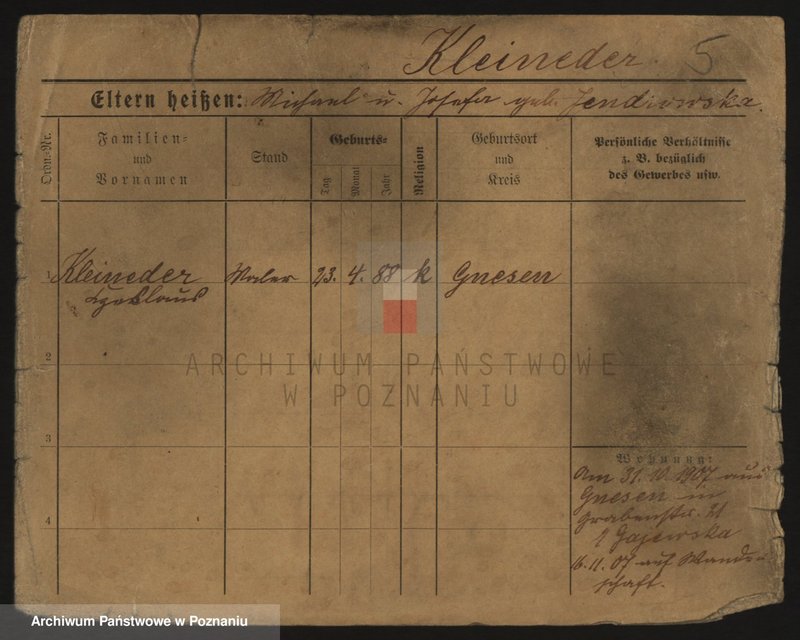 Kleineder 5
Eltern heißen: Michael u. Josefa geb. Jendrowska.
Ordn.-Nr.
Familien-
und
Vornamen
Stand
Geburts-
Tag
Monat
Jahr
Religion
Geburtsort
und
Kreis
Persönliche Verhältnisse
z. B. bezüglich
des Gewerbes usw.
1 Kleineder Maler 23. 4. 88 k Gnesen
2
ARCHIWUM PAŃSTWOWE
W POZNANIU
3
Wohnung:
Am 31. 10. 1907 aus
Gnesen in
Grabenstr. 21
Gajewska
4
16. 11. 07 auf Wander-
schaft.
Archiwum Państwowe w Poznaniu